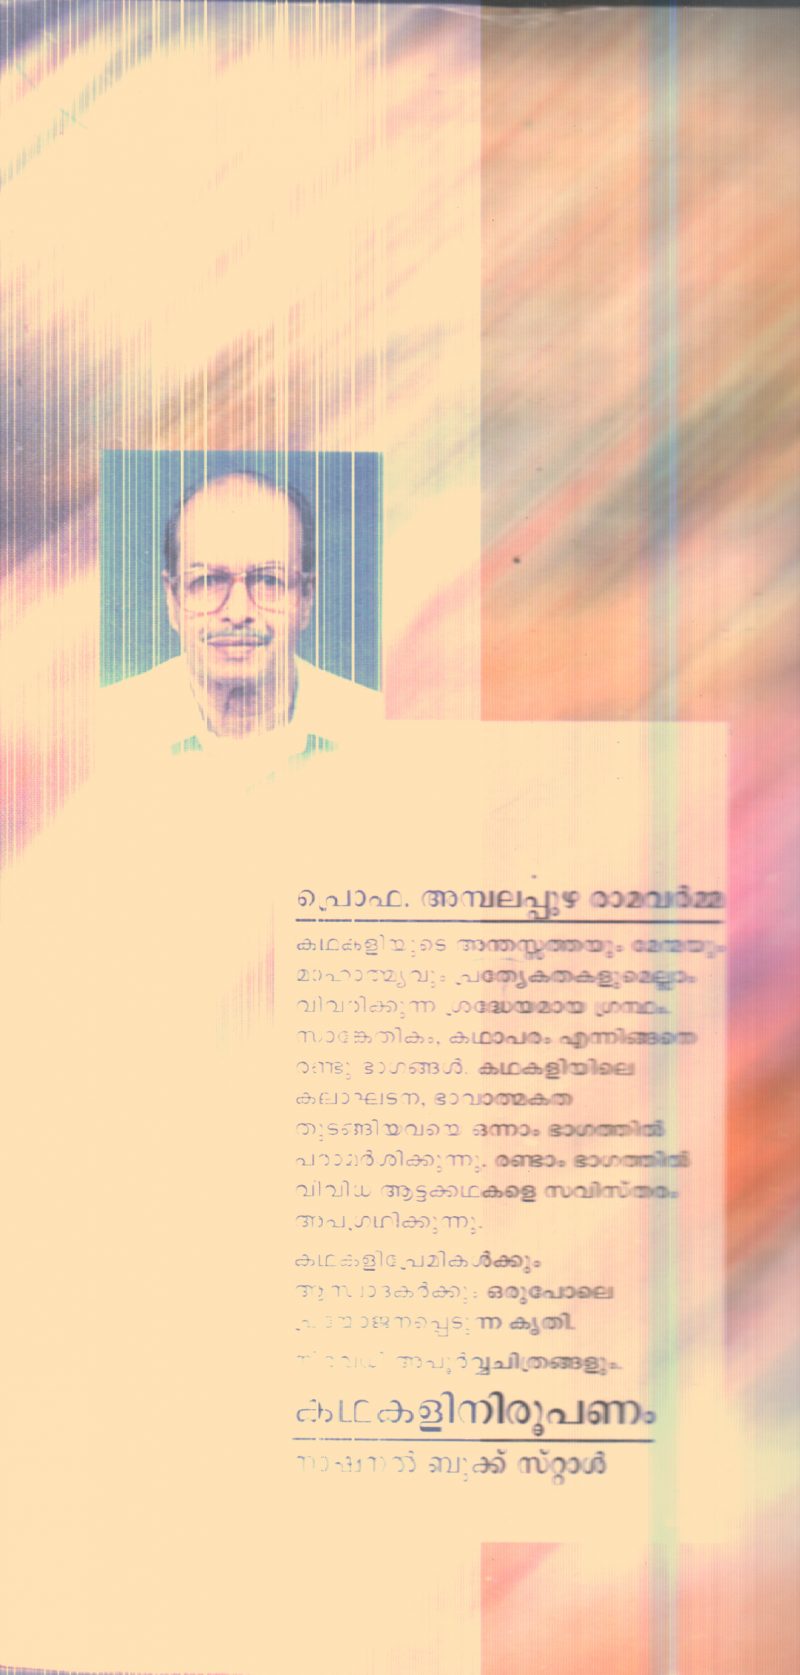 പ്രൊഫ. അമ്പലപ്പുഴ രാമവർമ്മ
കഥകളിയുടെ അന്തസ്സത്തയും മേന്മയും
മാഹാത്മ്യവും പ്രത്യേകതകളുമെല്ലാം
വിവരിക്കുന്ന ശ്രദ്ധേയമായ ഗ്രന്ഥം.
സാങ്കേതികം, കഥാപരം എന്നിങ്ങനെ
രണ്ടു ഭാഗങ്ങൾ. കഥകളിയിലെ
കലാഘടന, ഭാവാത്മകത
തുടങ്ങിയവയെ ഒന്നാം ഭാഗത്തിൽ
പരാമർശിക്കുന്നു. രണ്ടാം ഭാഗത്തിൽ
വിവിധ ആട്ടക്കഥകളെ സവിസ്തരം
അപഗ്രഥിക്കുന്നു.
കഥകളിപ്രേമികൾക്കും
ആസ്വാദകർക്കും ഒരുപോലെ
പ്രയോജനപ്പെടുന്ന കൃതി.
നിരവധി അപൂർവ്വചിത്രങ്ങളും.
കഥകളിനിരൂപണം
നാഷനൽ ബുക്ക് സ്റ്റാൾ